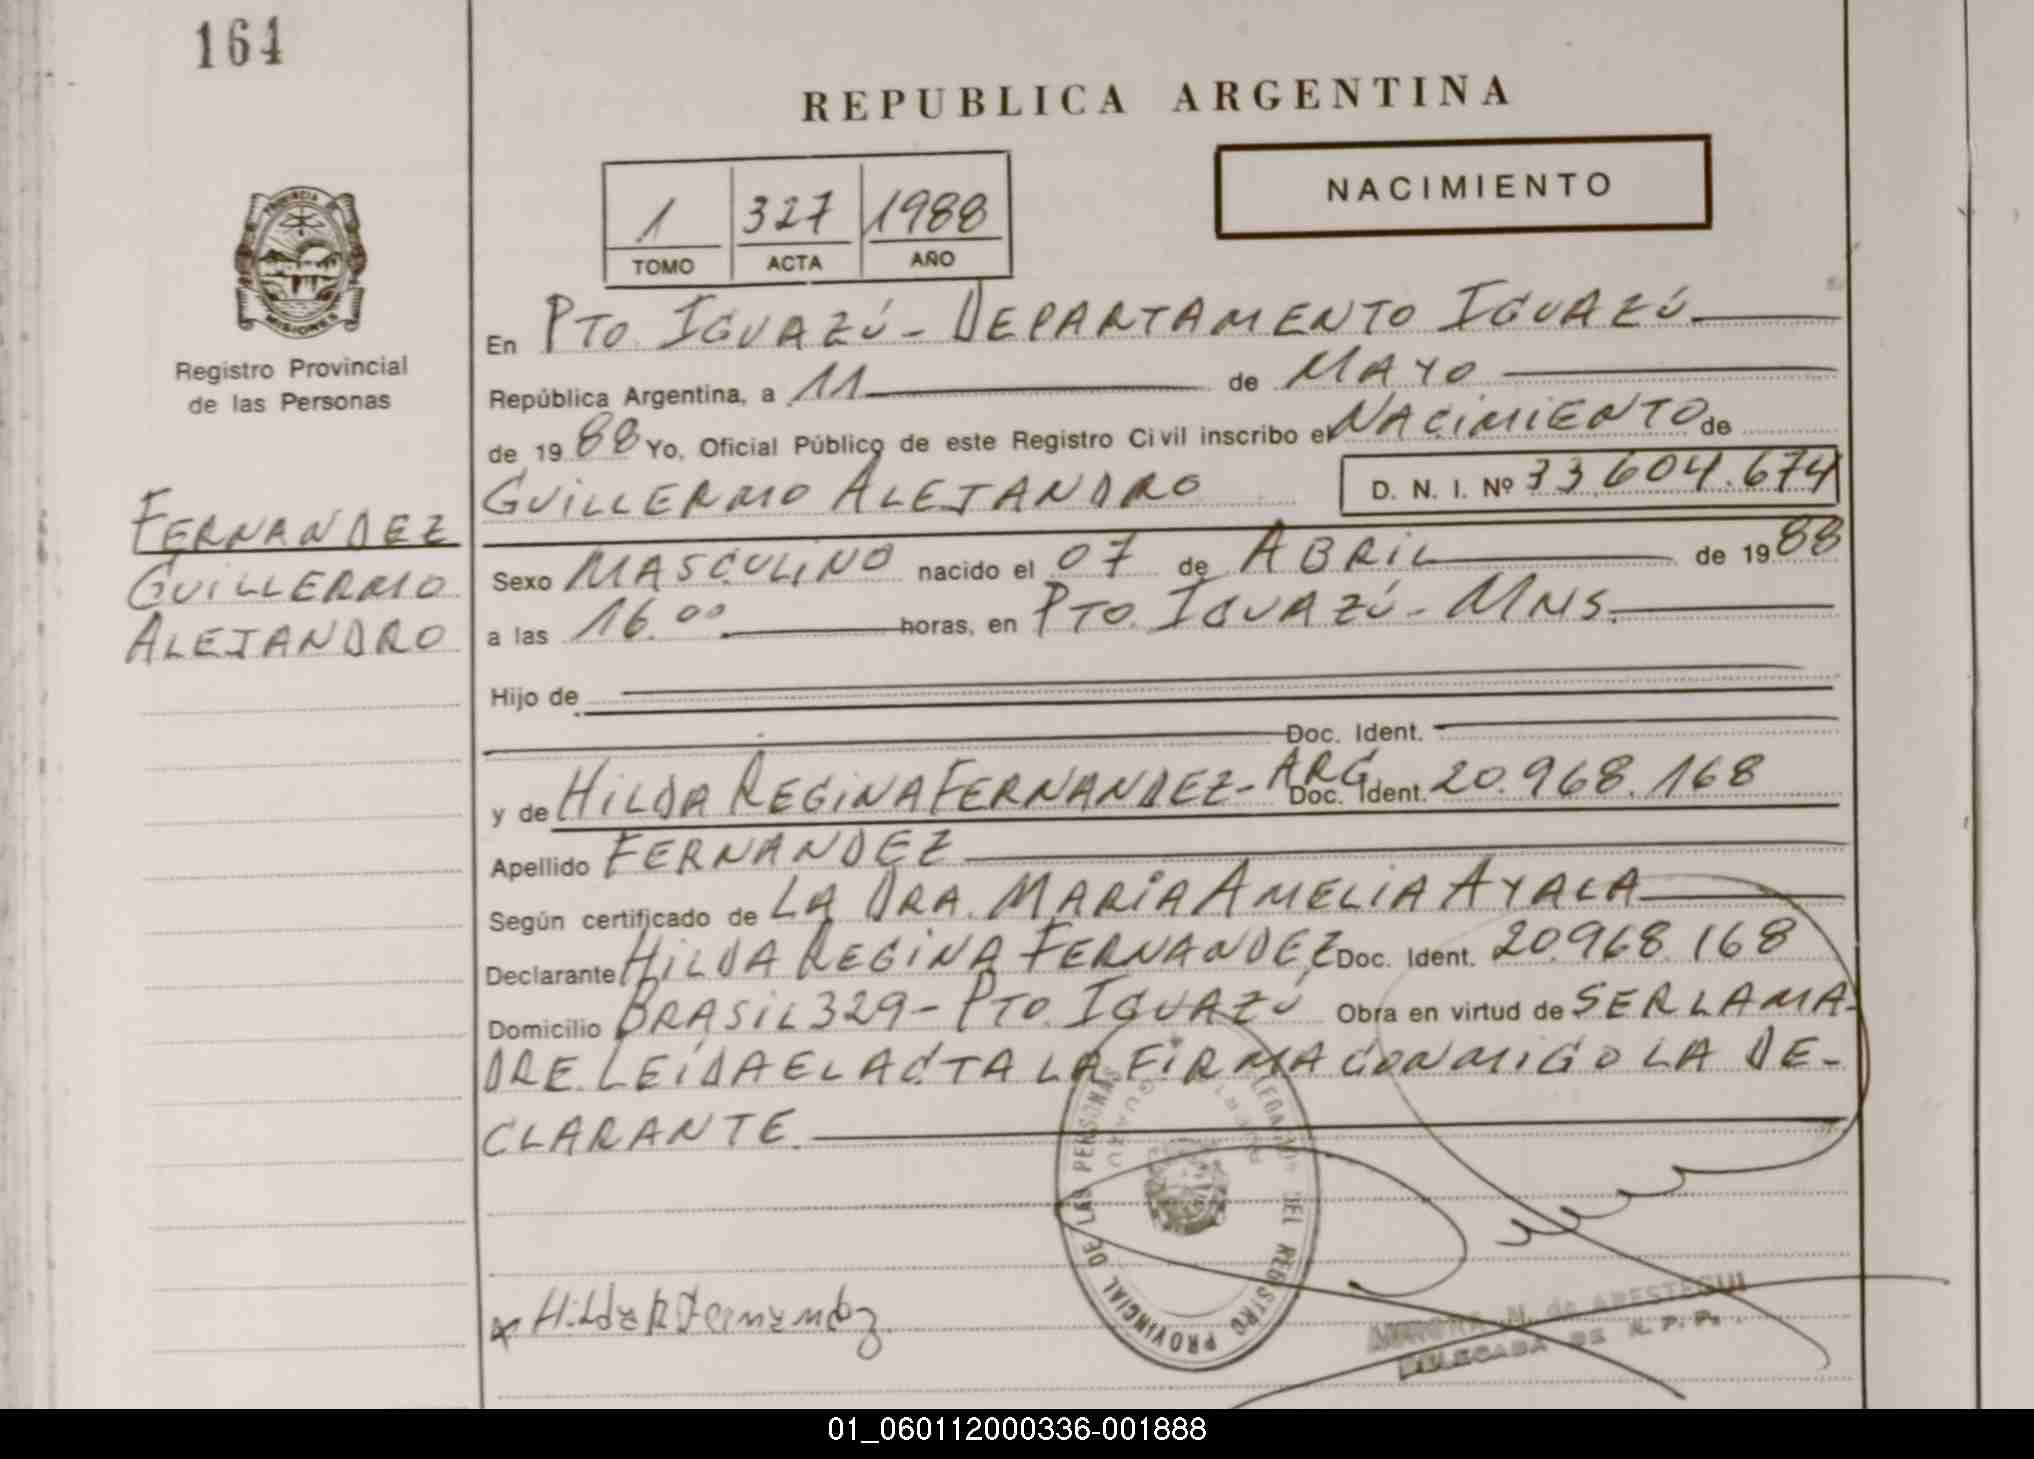 164
REPUBLICA ARGENTINA
NACIMIENTO
1 327 1988
TOMO ACTA AÑO
PROVINCIA
MISIONES
Registro Provincial
de las Personas
FERNANDEZ
GUILLERMO
ALEJANDRO
En PTO. IGUAZÚ - DEPARTAMENTO IGUAZÚ
República Argentina, a 11 de MAYO
de 1988 Yo, Oficial Público de este Registro Civil inscribo el NACIMIENTO de
GUILLERMO ALEJANDRO D. N. I. Nº 33.604.674
Sexo MASCULINO nacido el 07 de ABRIL de 1988
a las 16.00 horas, en PTO. IGUAZÚ - MNS.
Hijo de
Doc. Ident.
y de HILDA REGINA FERNANDEZ - ARG. Doc. Ident. 20.968.168
Apellido FERNANDEZ
Según certificado de LA DRA. MARIA AMELIA AYALA
Declarante HILDA REGINA FERNANDEZ Doc. Ident. 20.968.168
Domicilio BRASIL 329 - PTO. IGUAZÚ Obra en virtud de SER LA MA-
DRE. LEÍDA EL ACTA LA FIRMA CONMIGO LA DE-
CLARANTE.
DEL REGISTRO PROVINCIAL DE LAS PERSONAS
Hilda R Fernandez
N. de ARESTEGUI
DELEGADA DE R. P. P.
01_060112000336-001888